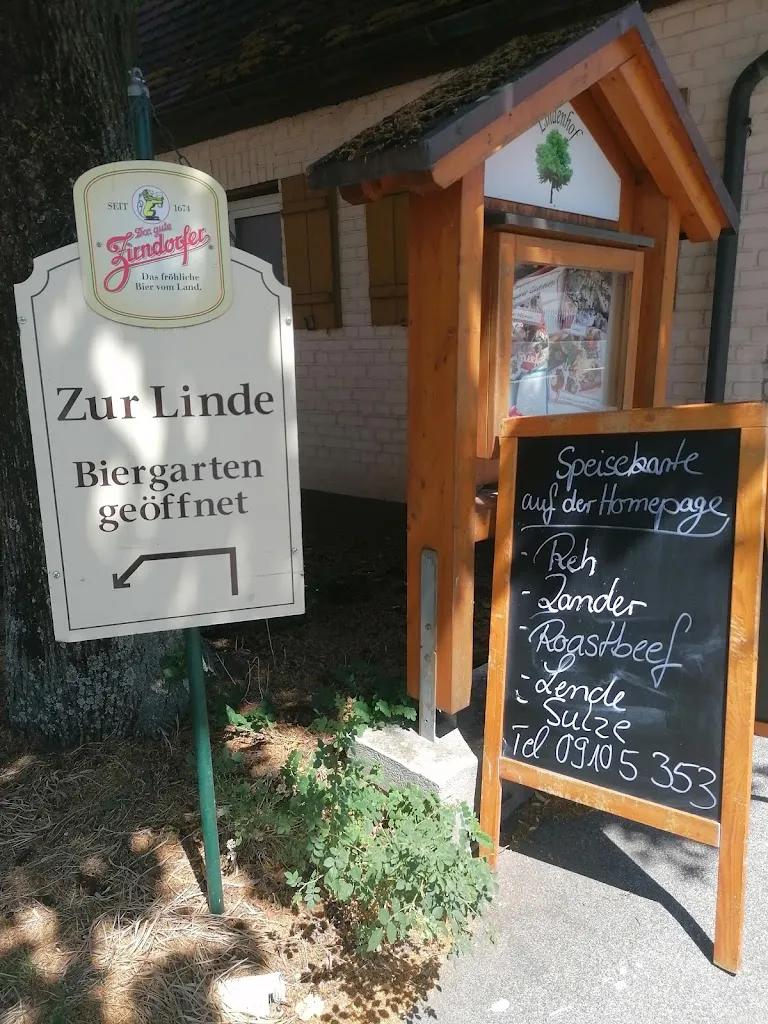 SEIT 1674
Das gute
Zirndorfer
Das fröhliche
Bier vom Land.
Zur Linde
Biergarten
geöffnet
Lindenhof
Speisekarte
auf der Homepage
- Reh
- Zander
- Roastbeef
- Lende
- Sülze
Tel 09105 353